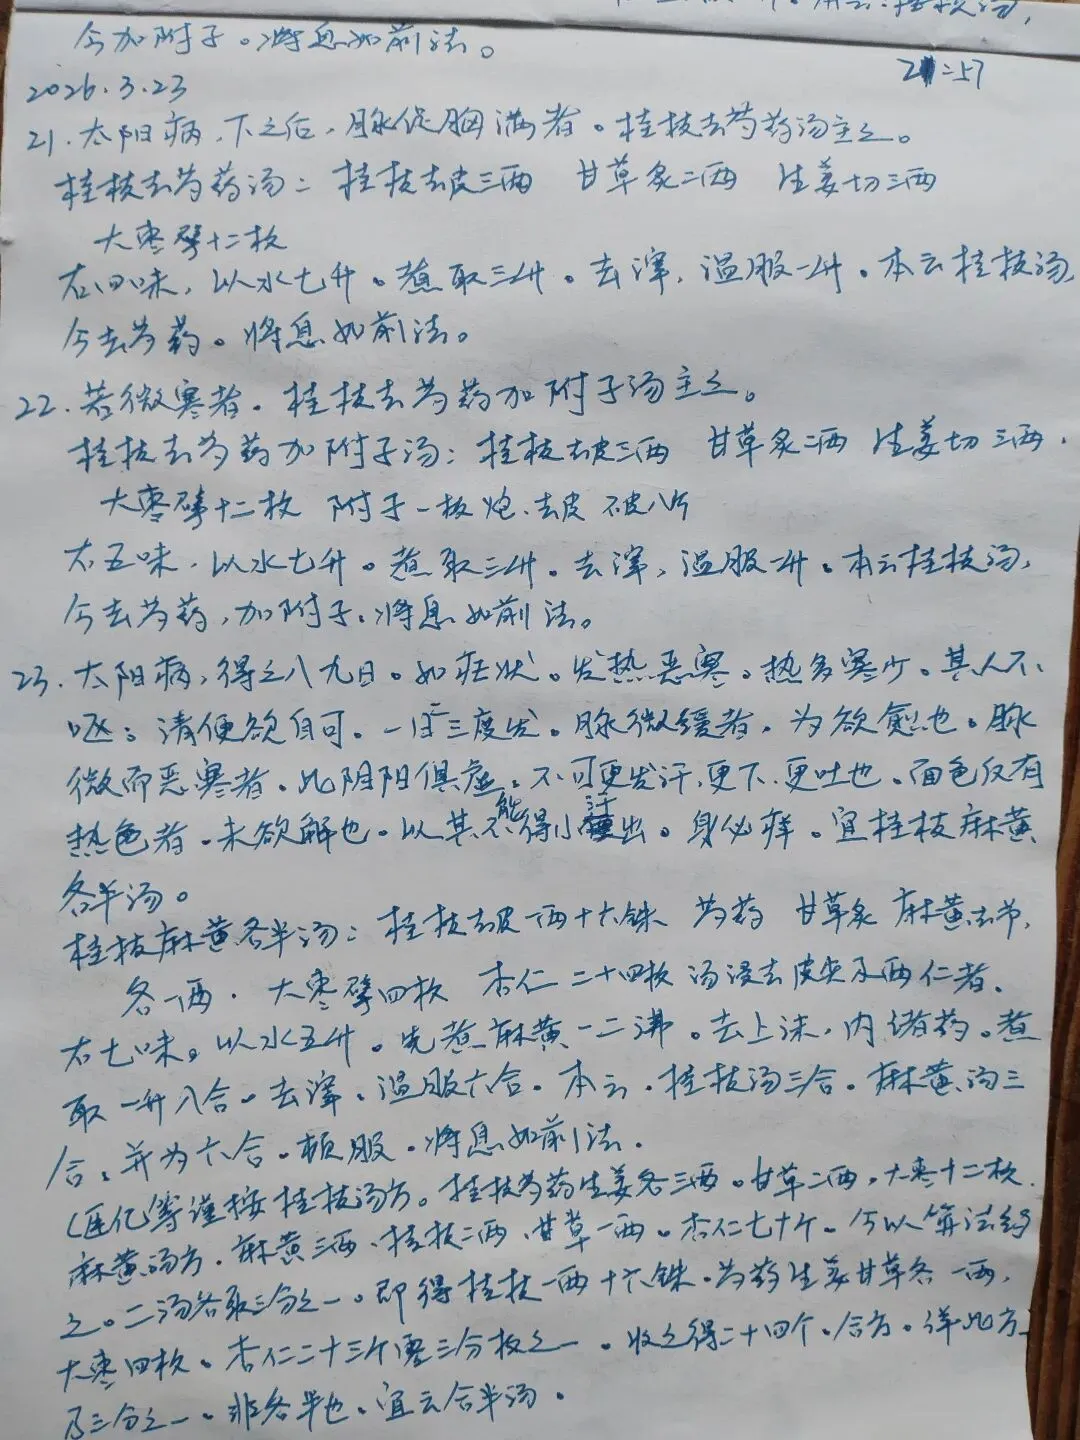 今加附子。将息如前法。
2026.3.23
21.太阳病,下之后,脉促胸满者。桂枝去芍药汤主之。
桂枝去芍药汤:桂枝去皮三两 甘草炙二两 生姜切三两
大枣擘十二枚
右四味,以水七升。煮取三升。去滓,温服一升。本云桂枝汤,
今去芍药。将息如前法。
22.若微寒者。桂枝去芍药加附子汤主之。
桂枝去芍药加附子汤:桂枝去皮三两 甘草炙二两 生姜切三两.
大枣擘十二枚 附子一枚炮.去皮 破八片
右五味.以水七升。煮取三升。去滓,温服一升。本云桂枝汤,
今去芍药,加附子.将息如前法。
23.太阳病,得之八九日。如疟状。发热恶寒。热多寒少。其人不
呕。清便欲自可.一日二三度发。脉微缓者.为欲愈也。脉
微而恶寒者.此阴阳俱虚。不可更发汗.更下.更吐也.面色反有
热色者.未欲解也。以其不能得小汗出。身必痒。宜桂枝麻黄
各半汤。
桂枝麻黄各半汤:桂枝去皮一两十六铢 芍药 甘草炙 麻黄去节,
各一两. 大枣擘四枚 杏仁二十四枚 汤浸去皮尖及两仁者.
右七味。以水五升。先煮麻黄一二沸。去上沫,内诸药。煮
取一升八合。去滓.温服六合.本云.桂枝汤三合.麻黄汤三
合.并为六合.顿服.将息如前法.
(臣亿等谨按桂枝汤方。桂枝芍药生姜各三两。甘草二两,大枣十二枚.
麻黄汤方.麻黄三两、桂枝二两、甘草一两。杏仁七十个。今以算法约
之。二汤各取三分之一。即得桂枝一两十六铢.芍药生姜甘草各一两,
大枣四枚。杏仁二十三个零三分枚之一.收之得二十四个.合方。详此方
乃三分之一。非各半也、宜云合半汤.